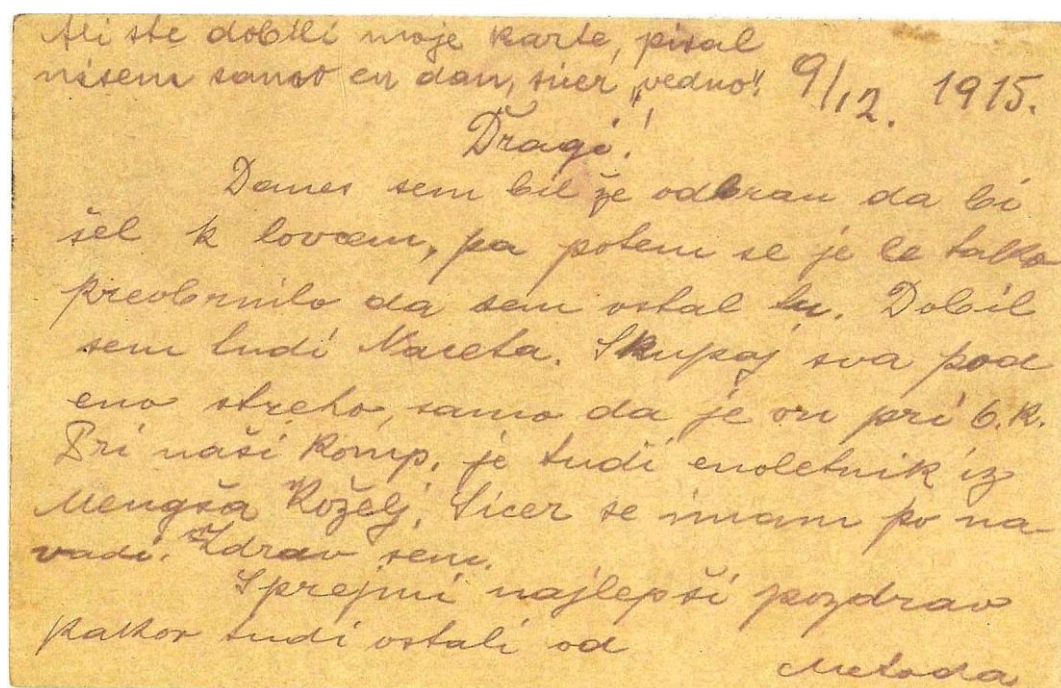 Ali ste dobili moje karte, pisal
nisem samo en dan, sicer „vedno“. 9/12. 1915.
Dragi!
Danes sem bil že odbran da bi
šel k lovcem, pa potem se je le tako
preobrnilo da sem ostal tu. Dobil
sem tudi Naceta. Skupaj sva pod
eno streho, samo da je on pri 6.K.
Pri naši komp. je tudi enoletnik iz
Mengša Koželj. Sicer se imam po na-
vadi. Zdrav sem.
Sprejmi najlepši pozdrav
kakor tudi ostali od
Metoda